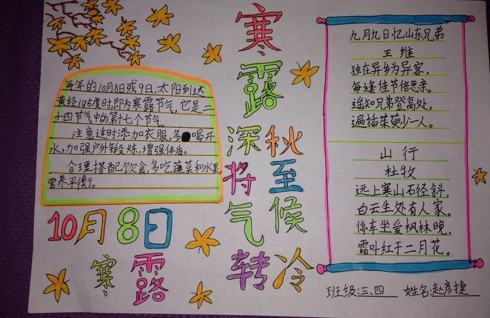 寒露
每年的10月8日或9日,太阳到达
黄经195度时,即为寒露节气,它是二
十四节气中的第十七个节气。
注意适时添加衣服,多喝开
水,加强户外锻炼,增强体质。
合理搭配饮食,多吃蔬菜和水果,
营养平衡。
10月8日
寒露
秋至候冷
深将气转
九月九日忆山东兄弟
王维
独在异乡为异客,
每逢佳节倍思亲。
遥知兄弟登高处,
遍插茱萸少一人。
山行
杜牧
远上寒山石径斜,
白云生处有人家。
停车坐爱枫林晚,
霜叶红于二月花。
班级:三、四 姓名:赵彦捷